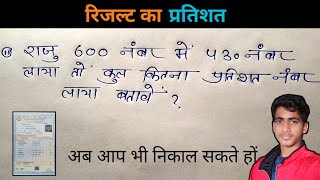 रिजल्ट का प्रतिशत
राजु 600 नंबर में 430 नंबर
लाया तो कुल कितना प्रतिशत नंबर
लाया बतावें ?
अब आप भी निकाल सकते हों